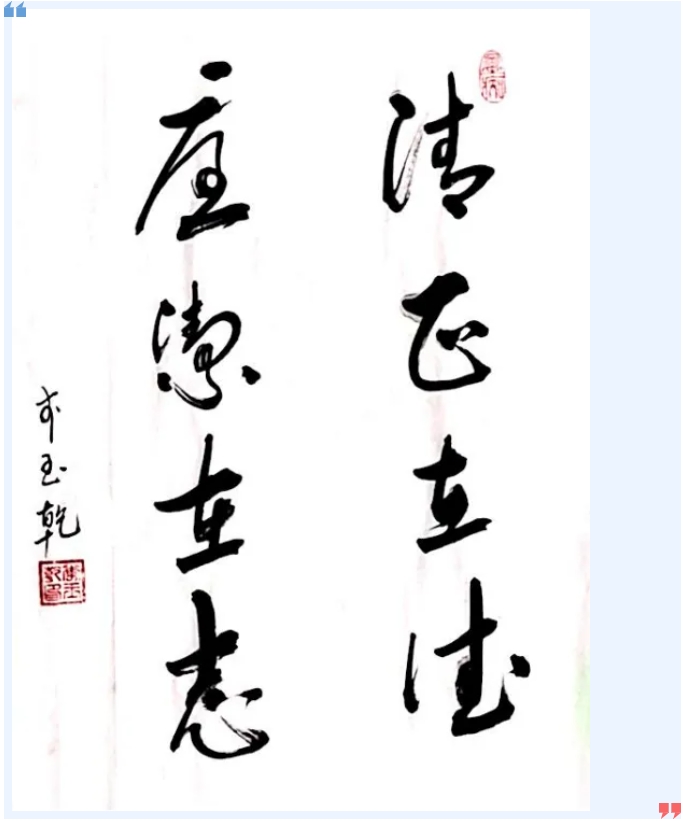 清正在德
廉潔在志
李玉乾